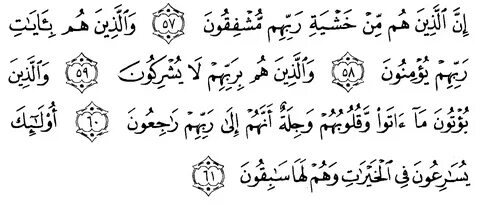 إِنَّ الَّذِينَ هُم مِّنْ خَشْيَةِ رَبِّهِم مُّشْفِقُونَ ٥٧ وَالَّذِينَ هُم بِـَٔايَـٰتِ
رَبِّهِمْ يُؤْمِنُونَ ٥٨ وَالَّذِينَ هُم بِرَبِّهِمْ لَا يُشْرِكُونَ ٥٩ وَالَّذِينَ
يُؤْتُونَ مَآ ءَاتَوا۟ وَّقُلُوبُهُمْ وَجِلَةٌ أَنَّهُمْ إِلَىٰ رَبِّهِمْ رَٰجِعُونَ ٦٠ أُو۟لَـٰٓئِكَ
يُسَـٰرِعُونَ فِى الْخَيْرَٰتِ وَهُمْ لَهَا سَـٰبِقُونَ ٦١